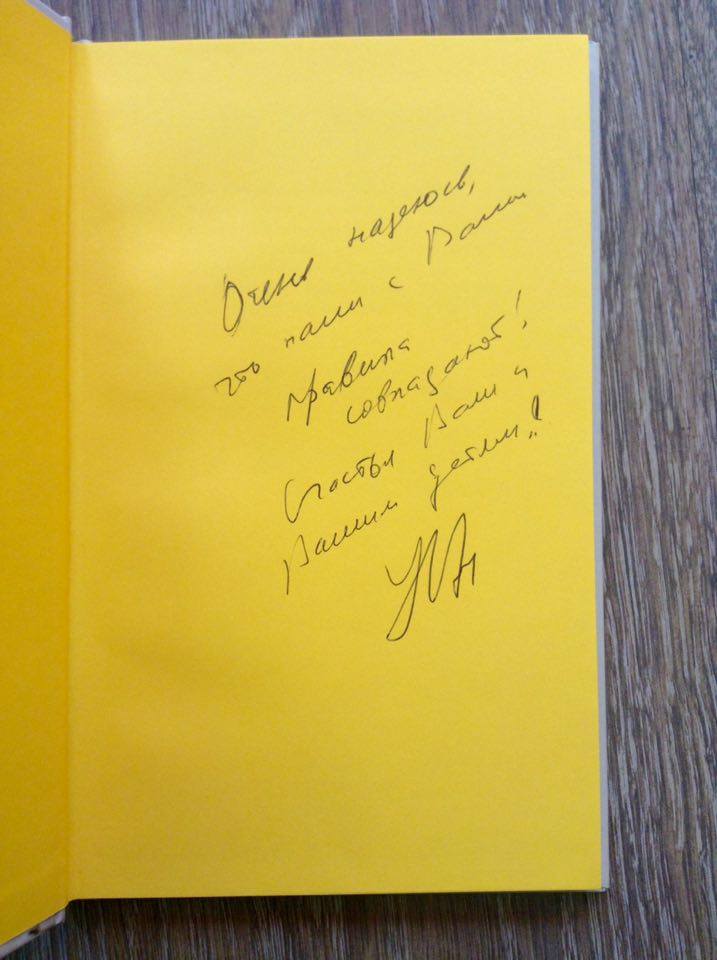 Очень надеюсь,
что наши с Вами
правила
совпадают!
Счастья Вам и
Вашим детям!